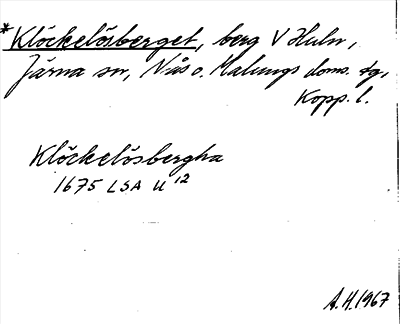 *Klöckelösberget, berg V Huln,
Järna sn, Nås o. Malungs doms. tg,
Kopp. l.
Klöckelösbergha
1675 LSA U 12
A.H. 1967